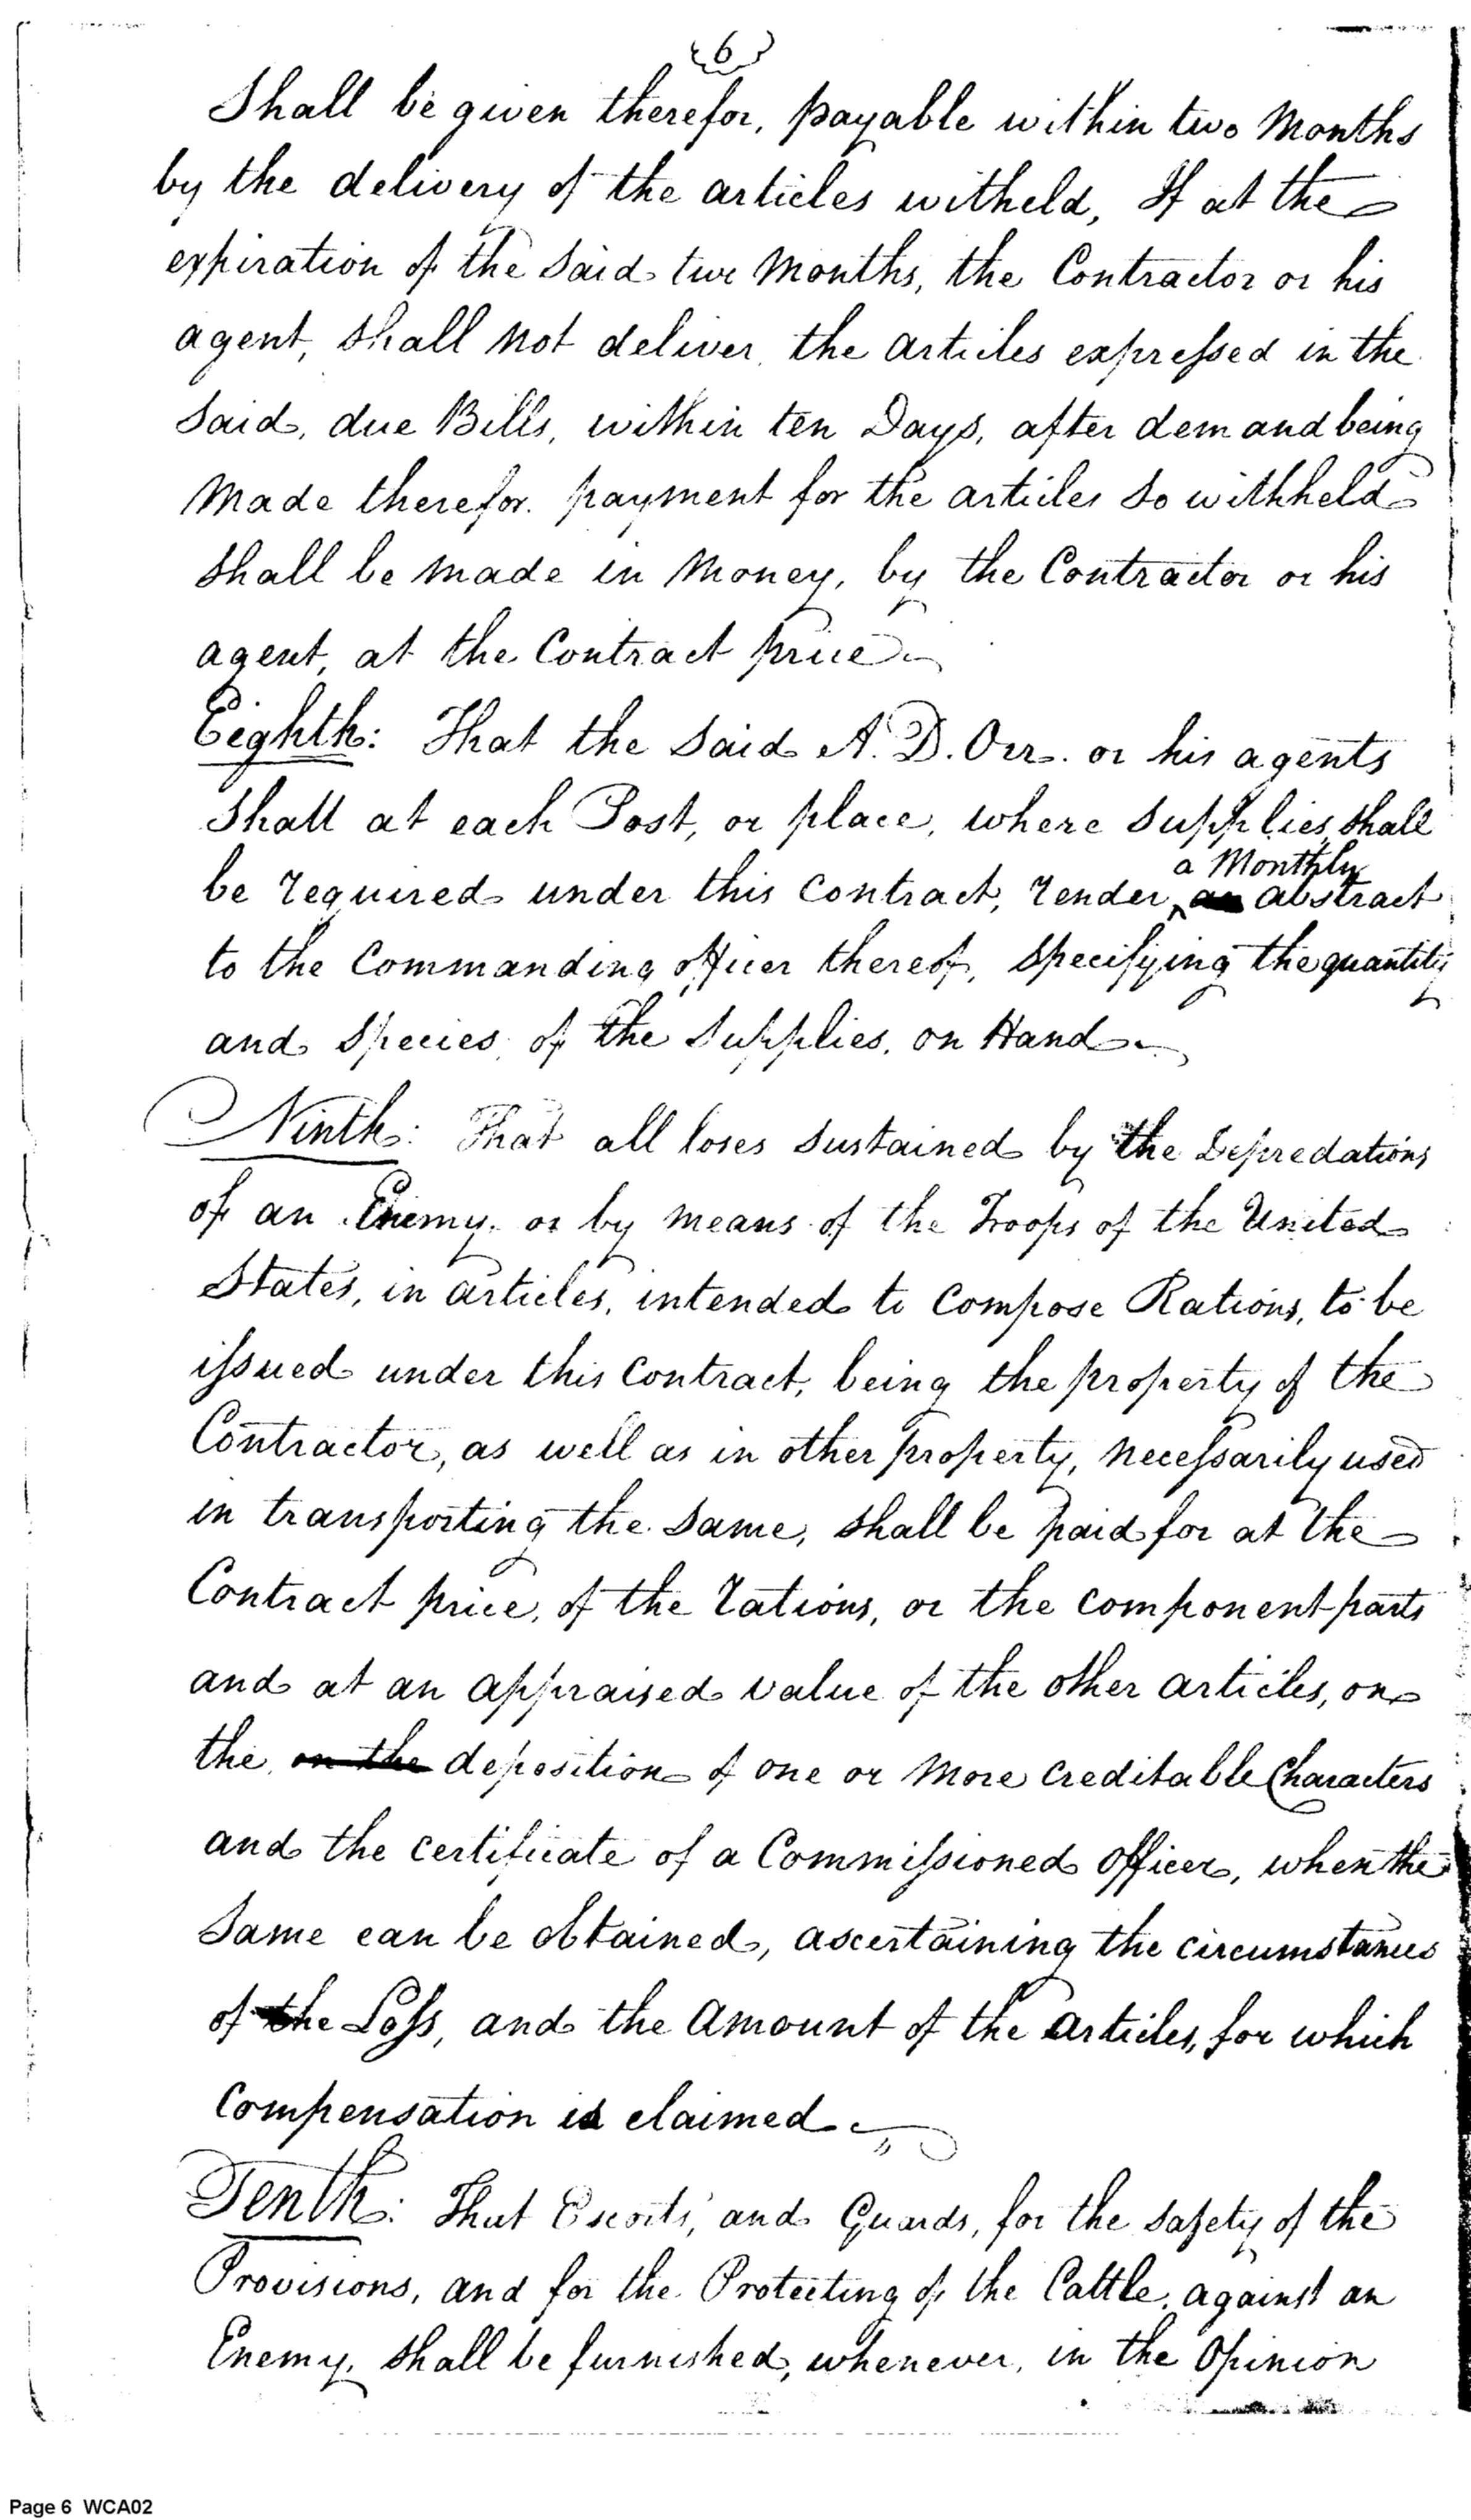 6
Shall be given therefor, payable within two Months
by the delivery of the articles witheld, If at the
expiration of the Said two Months, the Contractor or his
agent, shall not deliver the articles expressed in the
Said, due Bills, within ten Days, after demand being
Made therefor. payment for the articles so withheld
shall be made in Money, by the Contractor or his
agent, at the Contract price
Eighth: That the Said A. D. Orr. or his agents
Shall at each Post, or place, where Supplies, shall
a Monthly
be required under this Contract, render abstract
to the Commanding officer thereof, Specifying the quantity
and Species of the Supplies, on Hand
Ninth: That all loses Sustained by the Depredations
of an Enemy, or by means of the Troops of the United
States, in articles, intended to Compose Rations, to be
issued under this Contract, being the property of the
Contractor, as well as in other property, necessarily used
in transporting the Same, shall be paid for at the
Contract price, of the rations, or the component parts
and at an appraised value of the other articles, on
the on the deposition of one or more creditable Characters
and the certificate of a Commissioned officer, when the
Same can be obtained, ascertaining the circumstances
of the Loss, and the amount of the articles, for which
Compensation is claimed
Tenth: That Escorts, and Guards, for the safety of the
Provisions, and for the Protecting of the Cattle, against an
Enemy, shall be furnished, whenever, in the Opinion
Page 6 WCA02